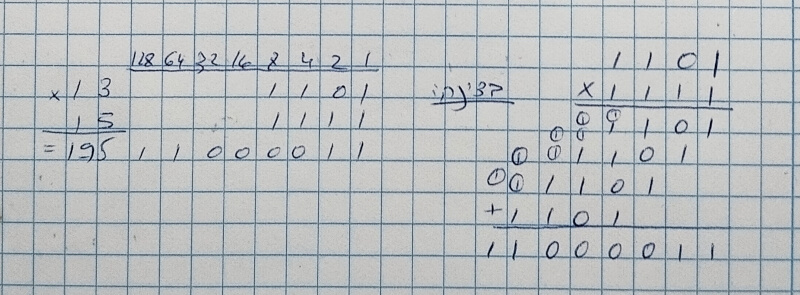 128 64 32 16 8 4 2 1
× 13 1 1 0 1
15 1 1 1 1
= 195 1 1 0 0 0 0 1 1
1 1 0 1
× 1 1 1 1
1 1 0 1
1 1 0 1
1 1 0 1
+ 1 1 0 1
1 1 0 0 0 0 1 1